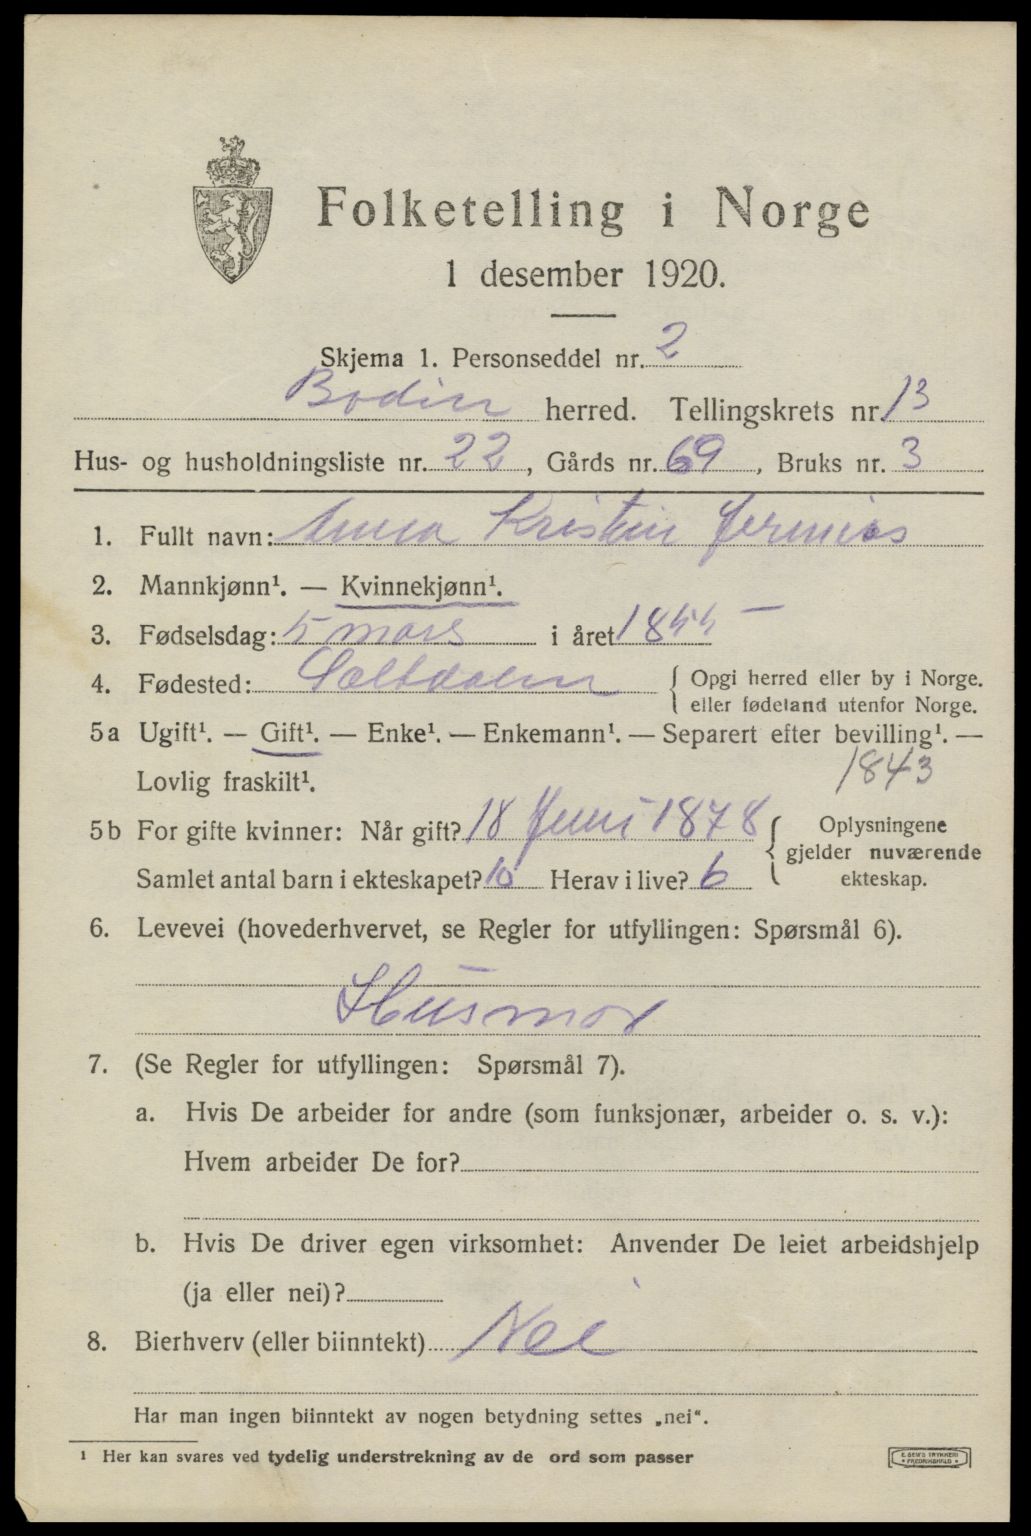 Folketelling i Norge
1 desember 1920.
Skjema 1. Personseddel nr. 2
Bodin herred. Tellingskrets nr. 13
Hus- og husholdningsliste nr. 22, Gårds nr. 69, Bruks nr. 3
1. Fullt navn: Anna Kristin Jermias
2. Mannkjønn¹. — Kvinnekjønn¹.
3. Fødselsdag: 5 mars i året 1855 —
4. Fødested: Saltdalen { Opgi herred eller by i Norge.
eller fødeland utenfor Norge.
5a Ugift¹. — Gift¹. — Enke¹. — Enkemann¹. — Separert efter bevilling¹. —
Lovlig fraskilt¹. 1843
5b For gifte kvinner: Når gift? 18 Juni 1878 { Oplysningene
gjelder nuværende
Samlet antal barn i ekteskapet? 10 Herav i live? 6 ekteskap.
6. Levevei (hovederhvervet, se Regler for utfyllingen: Spørsmål 6).
Husmor
7. (Se Regler for utfyllingen: Spørsmål 7).
a. Hvis De arbeider for andre (som funksjonær, arbeider o. s. v.):
Hvem arbeider De for?
b. Hvis De driver egen virksomhet: Anvender De leiet arbeidshjelp
(ja eller nei)?
8. Bierhverv (eller biinntekt) Nei
Har man ingen biinntekt av nogen betydning settes „nei“.
¹ Her kan svares ved tydelig understrekning av de ord som passer